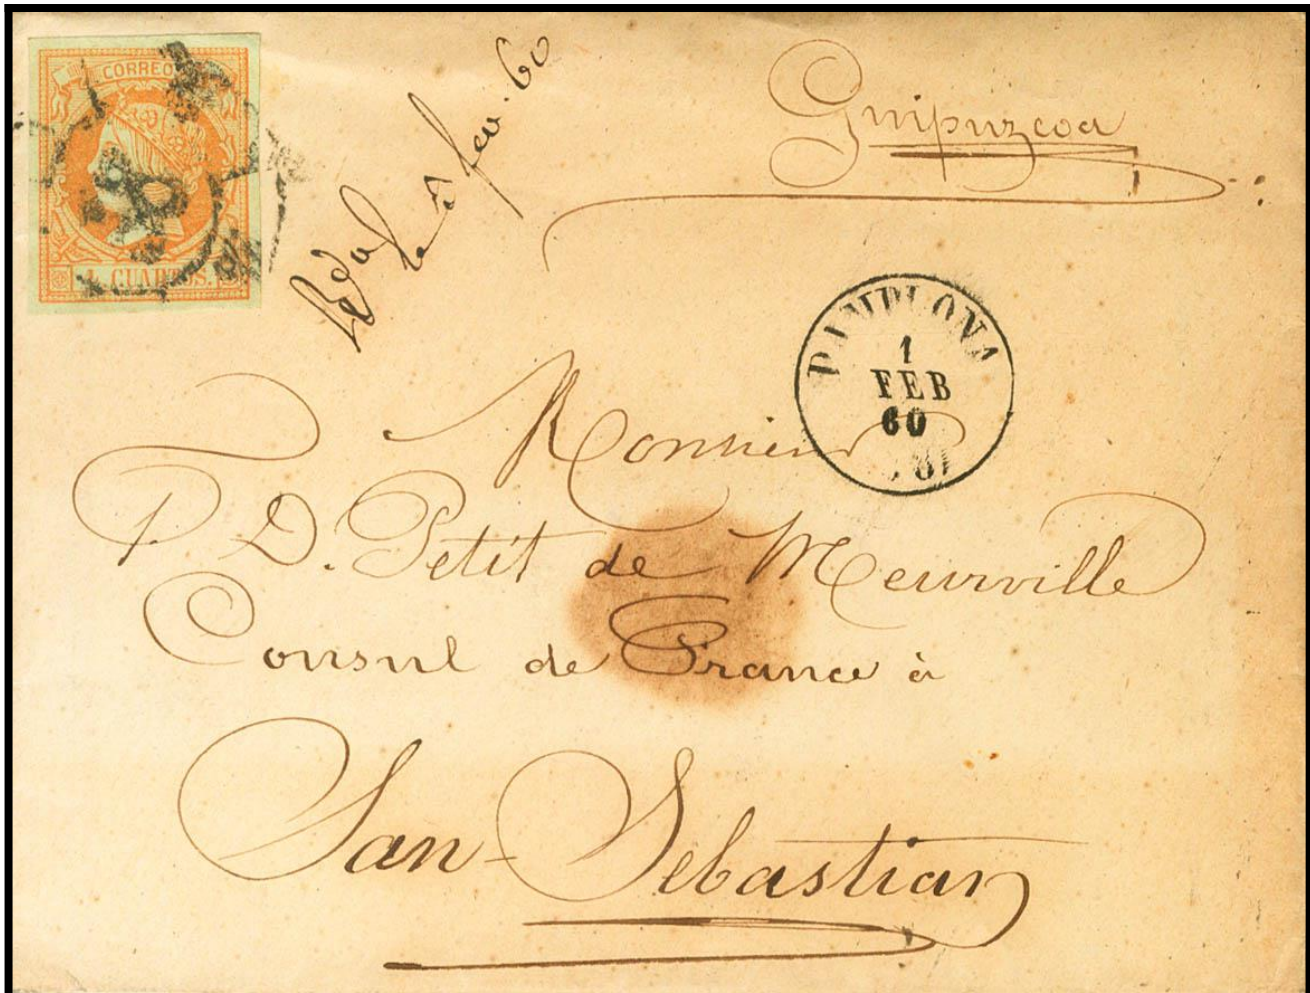 CORREOS
4 CUARTOS.
fev. 60
Guipuzcoa
PAMPLONA
1
FEB
60
Monsieur
P. D. Petit de Meurville
Consul de France à
San-Sebastian